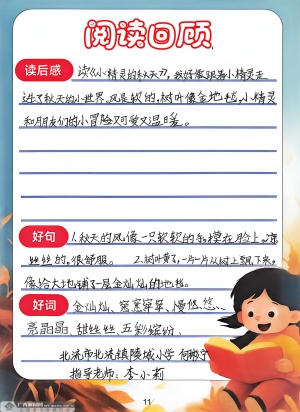 阅读回顾
读后感 读《小精灵的秋天》,我好像跟着小精灵走
进了秋天的小世界。风是软的,树叶像金地毯,小精灵
和朋友们的小冒险又可爱又温暖。
好句 1.秋天的风像一只软软的手摸在脸上,凉
丝丝的,很舒服。2.树叶黄了,一片一片从树上飘下来,
像给大地铺了一层金灿灿的地毯。
好词 金灿灿、窸窸窣窣、慢悠悠、
亮晶晶、甜丝丝、五彩缤纷、
北流市北流镇陵城小学 何
指导老师:李小莉
11